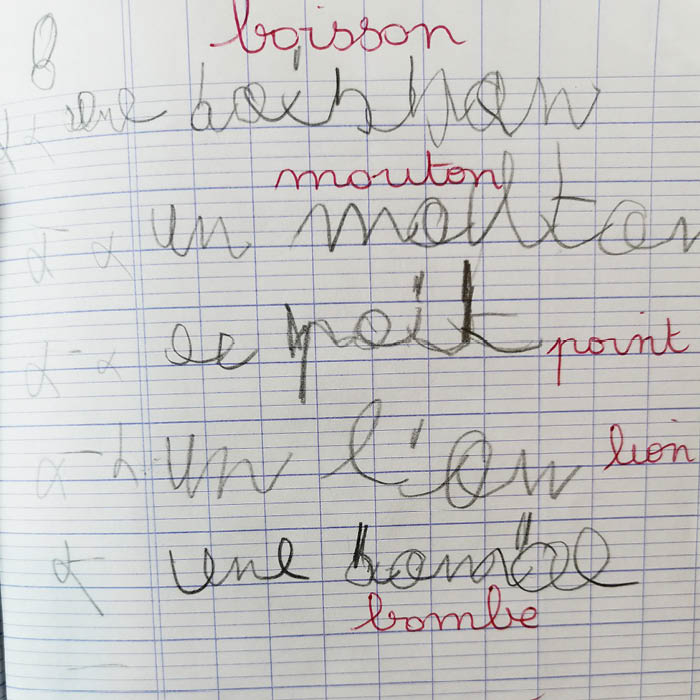 8 boisson
une boishon
mouton
un molton
le poit point
un lion lion
une bombe
bombe